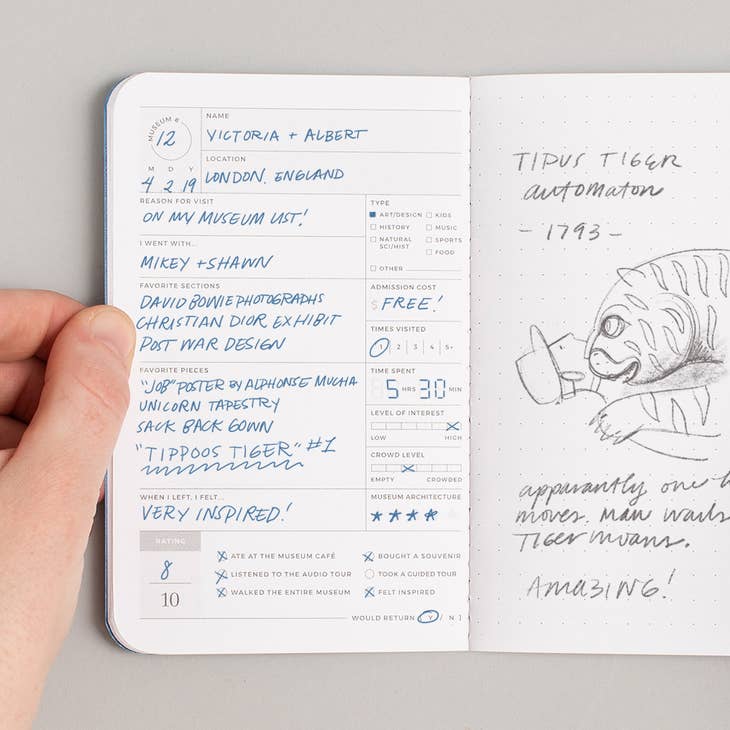 MUSEUM #
12
NAME
VICTORIA + ALBERT
M D Y
4 2 19
LOCATION
LONDON, ENGLAND
REASON FOR VISIT
ON MY MUSEUM LIST!
I WENT WITH...
MIKEY + SHAWN
FAVORITE SECTIONS
DAVID BOWIE PHOTOGRAPHS
CHRISTIAN DIOR EXHIBIT
POST WAR DESIGN
FAVORITE PIECES
"JOB" POSTER BY ALPHONSE MUCHA
UNICORN TAPESTRY
SACK BACK GOWN
"TIPPOOS TIGER" #1
WHEN I LEFT, I FELT...
VERY INSPIRED!
TYPE
ART/DESIGN KIDS
HISTORY MUSIC
NATURAL SCI/HIST SPORTS
FOOD
OTHER
ADMISSION COST
$ FREE!
TIMES VISITED
1 | 2 | 3 | 4 | 5+
TIME SPENT
5 HRS 30 MIN
LEVEL OF INTEREST
LOW HIGH
CROWD LEVEL
EMPTY CROWDED
MUSEUM ARCHITECTURE
RATING
8
10
ATE AT THE MUSEUM CAFÉ
LISTENED TO THE AUDIO TOUR
WALKED THE ENTIRE MUSEUM
BOUGHT A SOUVENIR
TOOK A GUIDED TOUR
FELT INSPIRED
WOULD RETURN Y / N ]
TIPUS TIGER
automaton
- 1793 -
apparantly one
moves. Man wails
Tiger moans.
AMAZING!